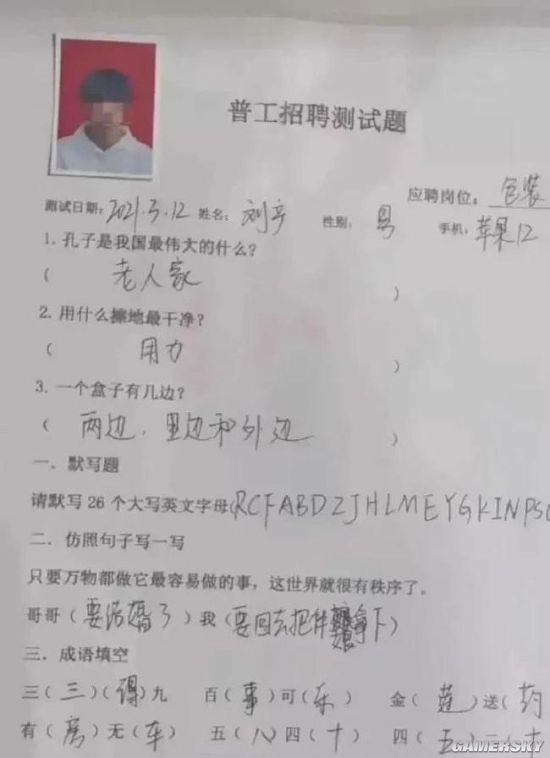 普工招聘测试题
应聘岗位：包装
测试日期：2021.3.12 姓名：刘宇 性别：男 手机：苹果12
1. 孔子是我国最伟大的什么？
（ 老人家 ）
2. 用什么擦地最干净？
（ 用力 ）
3. 一个盒子有几边？
（ 两边，里边和外边 ）
一．默写题
请默写 26 个大写英文字母（RCFABDZJHLMEYGKINPS
二．仿照句子写一写
只要万物都做它最容易做的事，这世界就很有秩序了。
哥哥（要结婚了）我（要回去把伴娘拿下）
三．成语填空
三（三）（得）九 百（事）可（乐） 金（莲）送（药
有（房）无（车） 五（八）四（十） 四（五）二（十
GAMERSKY